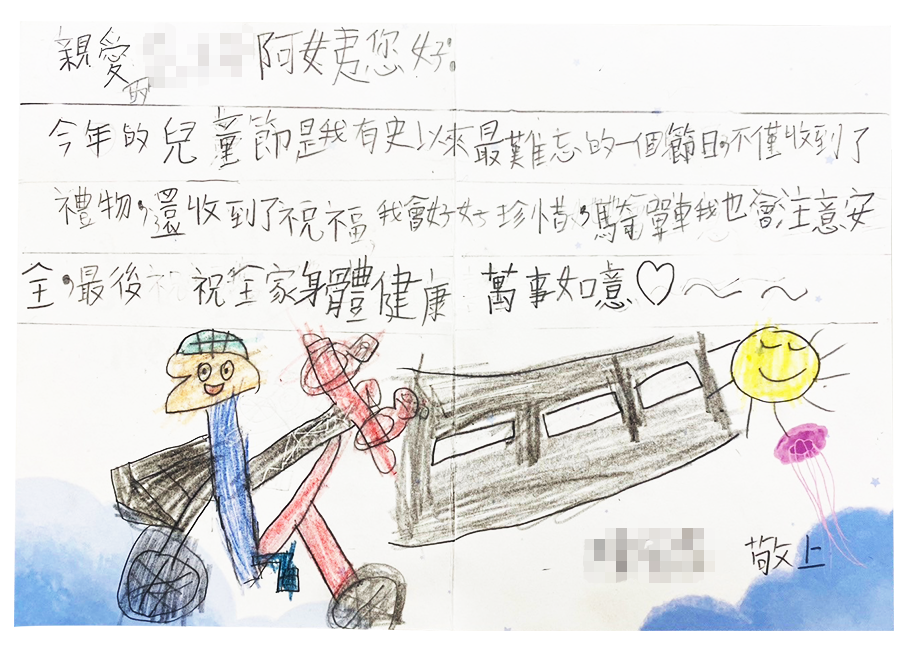 親愛的 阿姨您好:
今年的兒童節是我有史以來最難忘的一個節日,不僅收到了
禮物,還收到了祝福我會好好珍惜,騎單車我也會注意安
全,最後祝祝全家身體健康 萬事如意♡～～
敬上